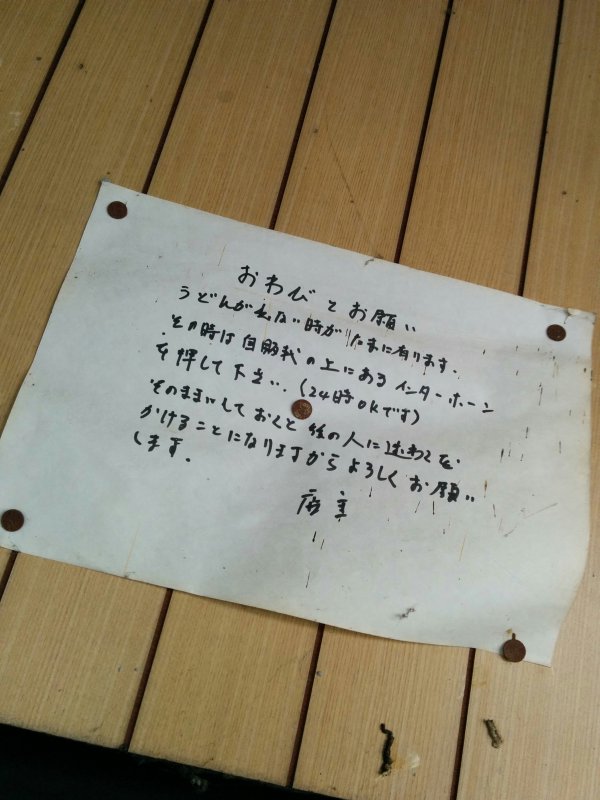 おわびとお願い
うどんが出ない時がたまに有ります。
その時は自販機の上にあるインターホーン
を押して下さい。(24時OKです)
そのままにしておくと後の人に迷わくを
かけることになりますからよろしくお願い
します。
店主